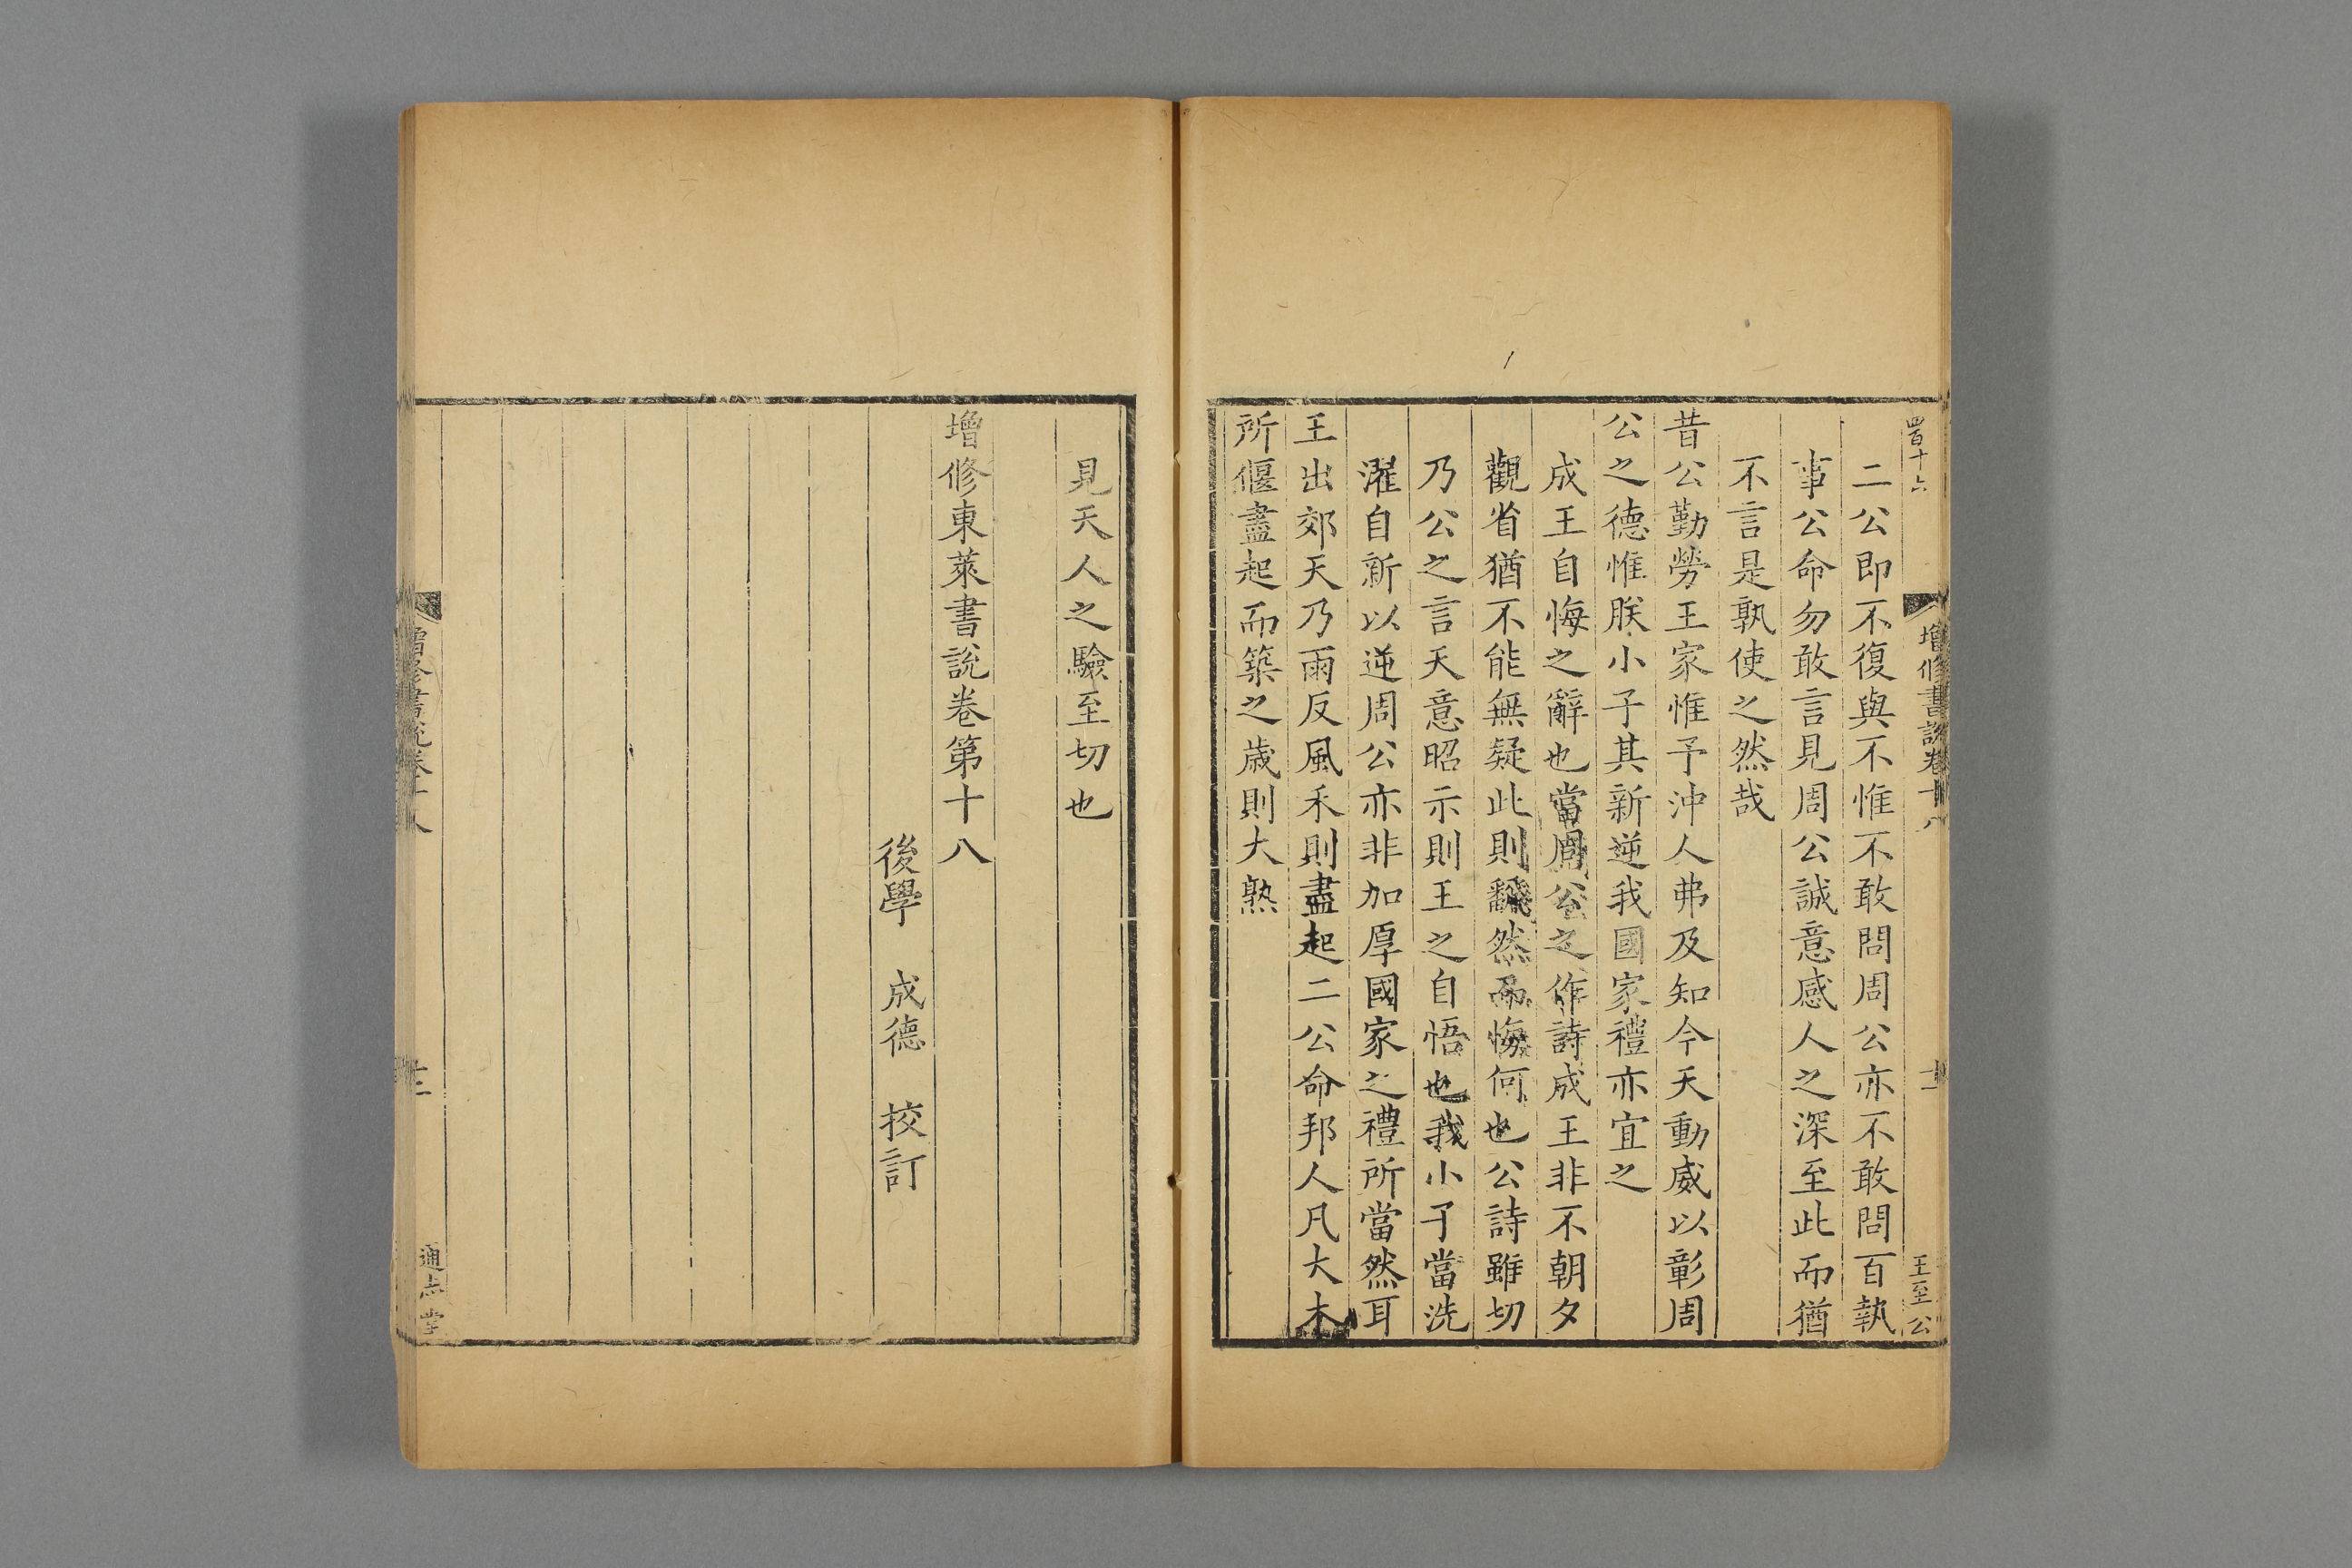 四百十六
增修書說卷十八
十二
王至公
二公即不復與不惟不敢問周公亦不敢問百執
事公命勿敢言見周公誠意感人之深至此而猶
不言是孰使之然哉
昔公勤勞王家惟予沖人弗及知今天動威以彰周
公之德惟朕小子其新逆我國家禮亦宜之
成王自悔之辭也當周公之作詩成王非不朝夕
觀省猶不能無疑此則飜然而悔何也公詩雖切
乃公之言天意昭示則王之自悟也我小子當洗
濯自新以逆周公亦非加厚國家之禮所當然耳
王出郊天乃雨反風禾則盡起二公命邦人凡大木
所偃盡起而築之歲則大熟
見天人之驗至切也
增修東萊書說卷第十八
後學 成德 校訂
增修書說卷十八
通志堂